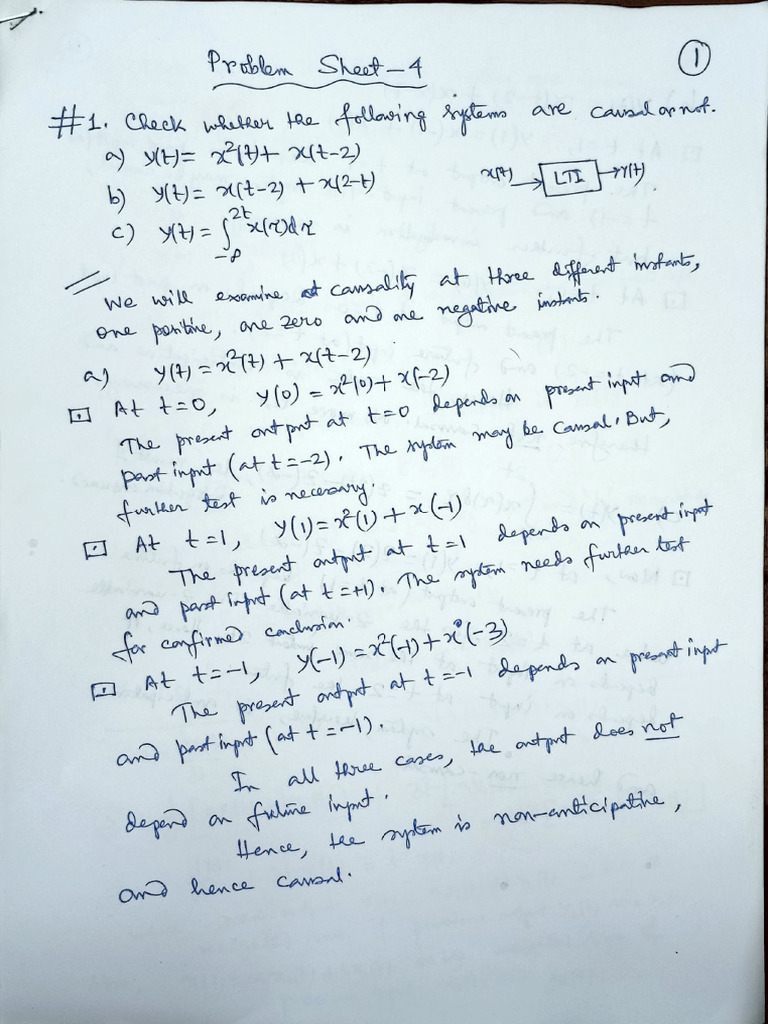 Problem Sheet-4
1
#1. Check whether the following systems are causal or not.
a) y(t) = x²(t) + x(t-2)
b) y(t) = x(t-2) + x(2-t)
x(t) → LTI → y(t)
c) y(t) = ∫_{-∞}^{2t} x(τ)dτ
We will examine causality at three different instants,
one positive, one zero and one negative instants.
a) y(t) = x²(t) + x(t-2)
At t=0, y(0) = x²(0) + x(-2)
The present output at t=0 depends on present input and
past input (at t=-2). The system may be causal. But,
further test is necessary.
At t=1, y(1) = x²(1) + x(-1)
The present output at t=1 depends on present input
and past input (at t=+1). The system needs further test
for confirmed conclusion.
At t=-1, y(-1) = x²(-1) + x(-3)
The present output at t=-1 depends on present input
and past input (at t=-1).
In all three cases, the output does not
depend on future input.
Hence, the system is non-anticipative,
and hence causal.